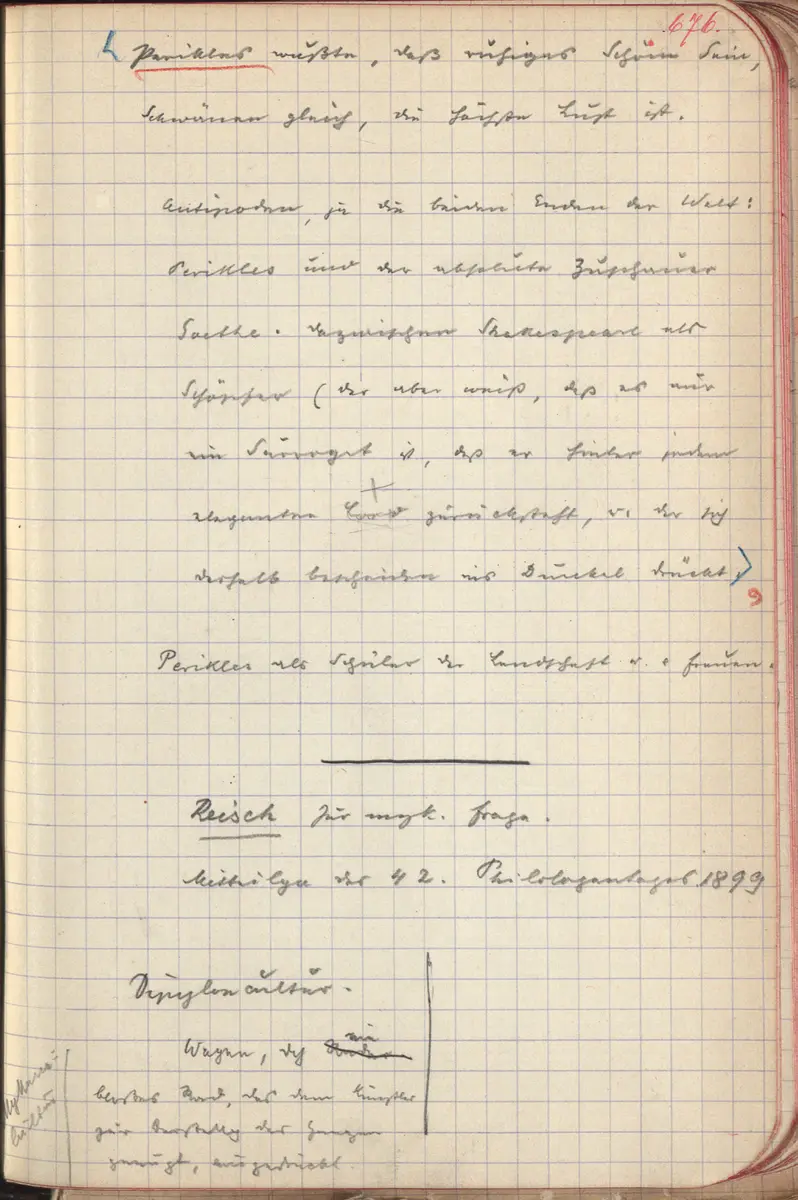 676.
Perikles wußte, daß ruhiges Schön Sein,
Schwänen gleich, die höchste Lust ist.
Antipoden, ja die beiden Enden der Welt:
Perikles und der absolute Zuschauer
Goethe. dazwischen Shakespeare als
Schöpfer (der aber weiß, daß es nur
ein Surrogat ist, daß er hinter jedem
eleganten Lord zurücksteht, u. der sich
deshalb bescheiden ins Dunkel drückt.
9
Perikles als Schüler der Landschaft u. Frauen.
Reisch für myk. Frage.
Mitteilgn des 42. Philologentages. 1899
Dipylon cultur.
Wagen, dch ein
bloßes Rad, das dem Künstler
zur Darstellg des Ganzen
genügt, ausgedrückt.
Mykenae-
Cultur